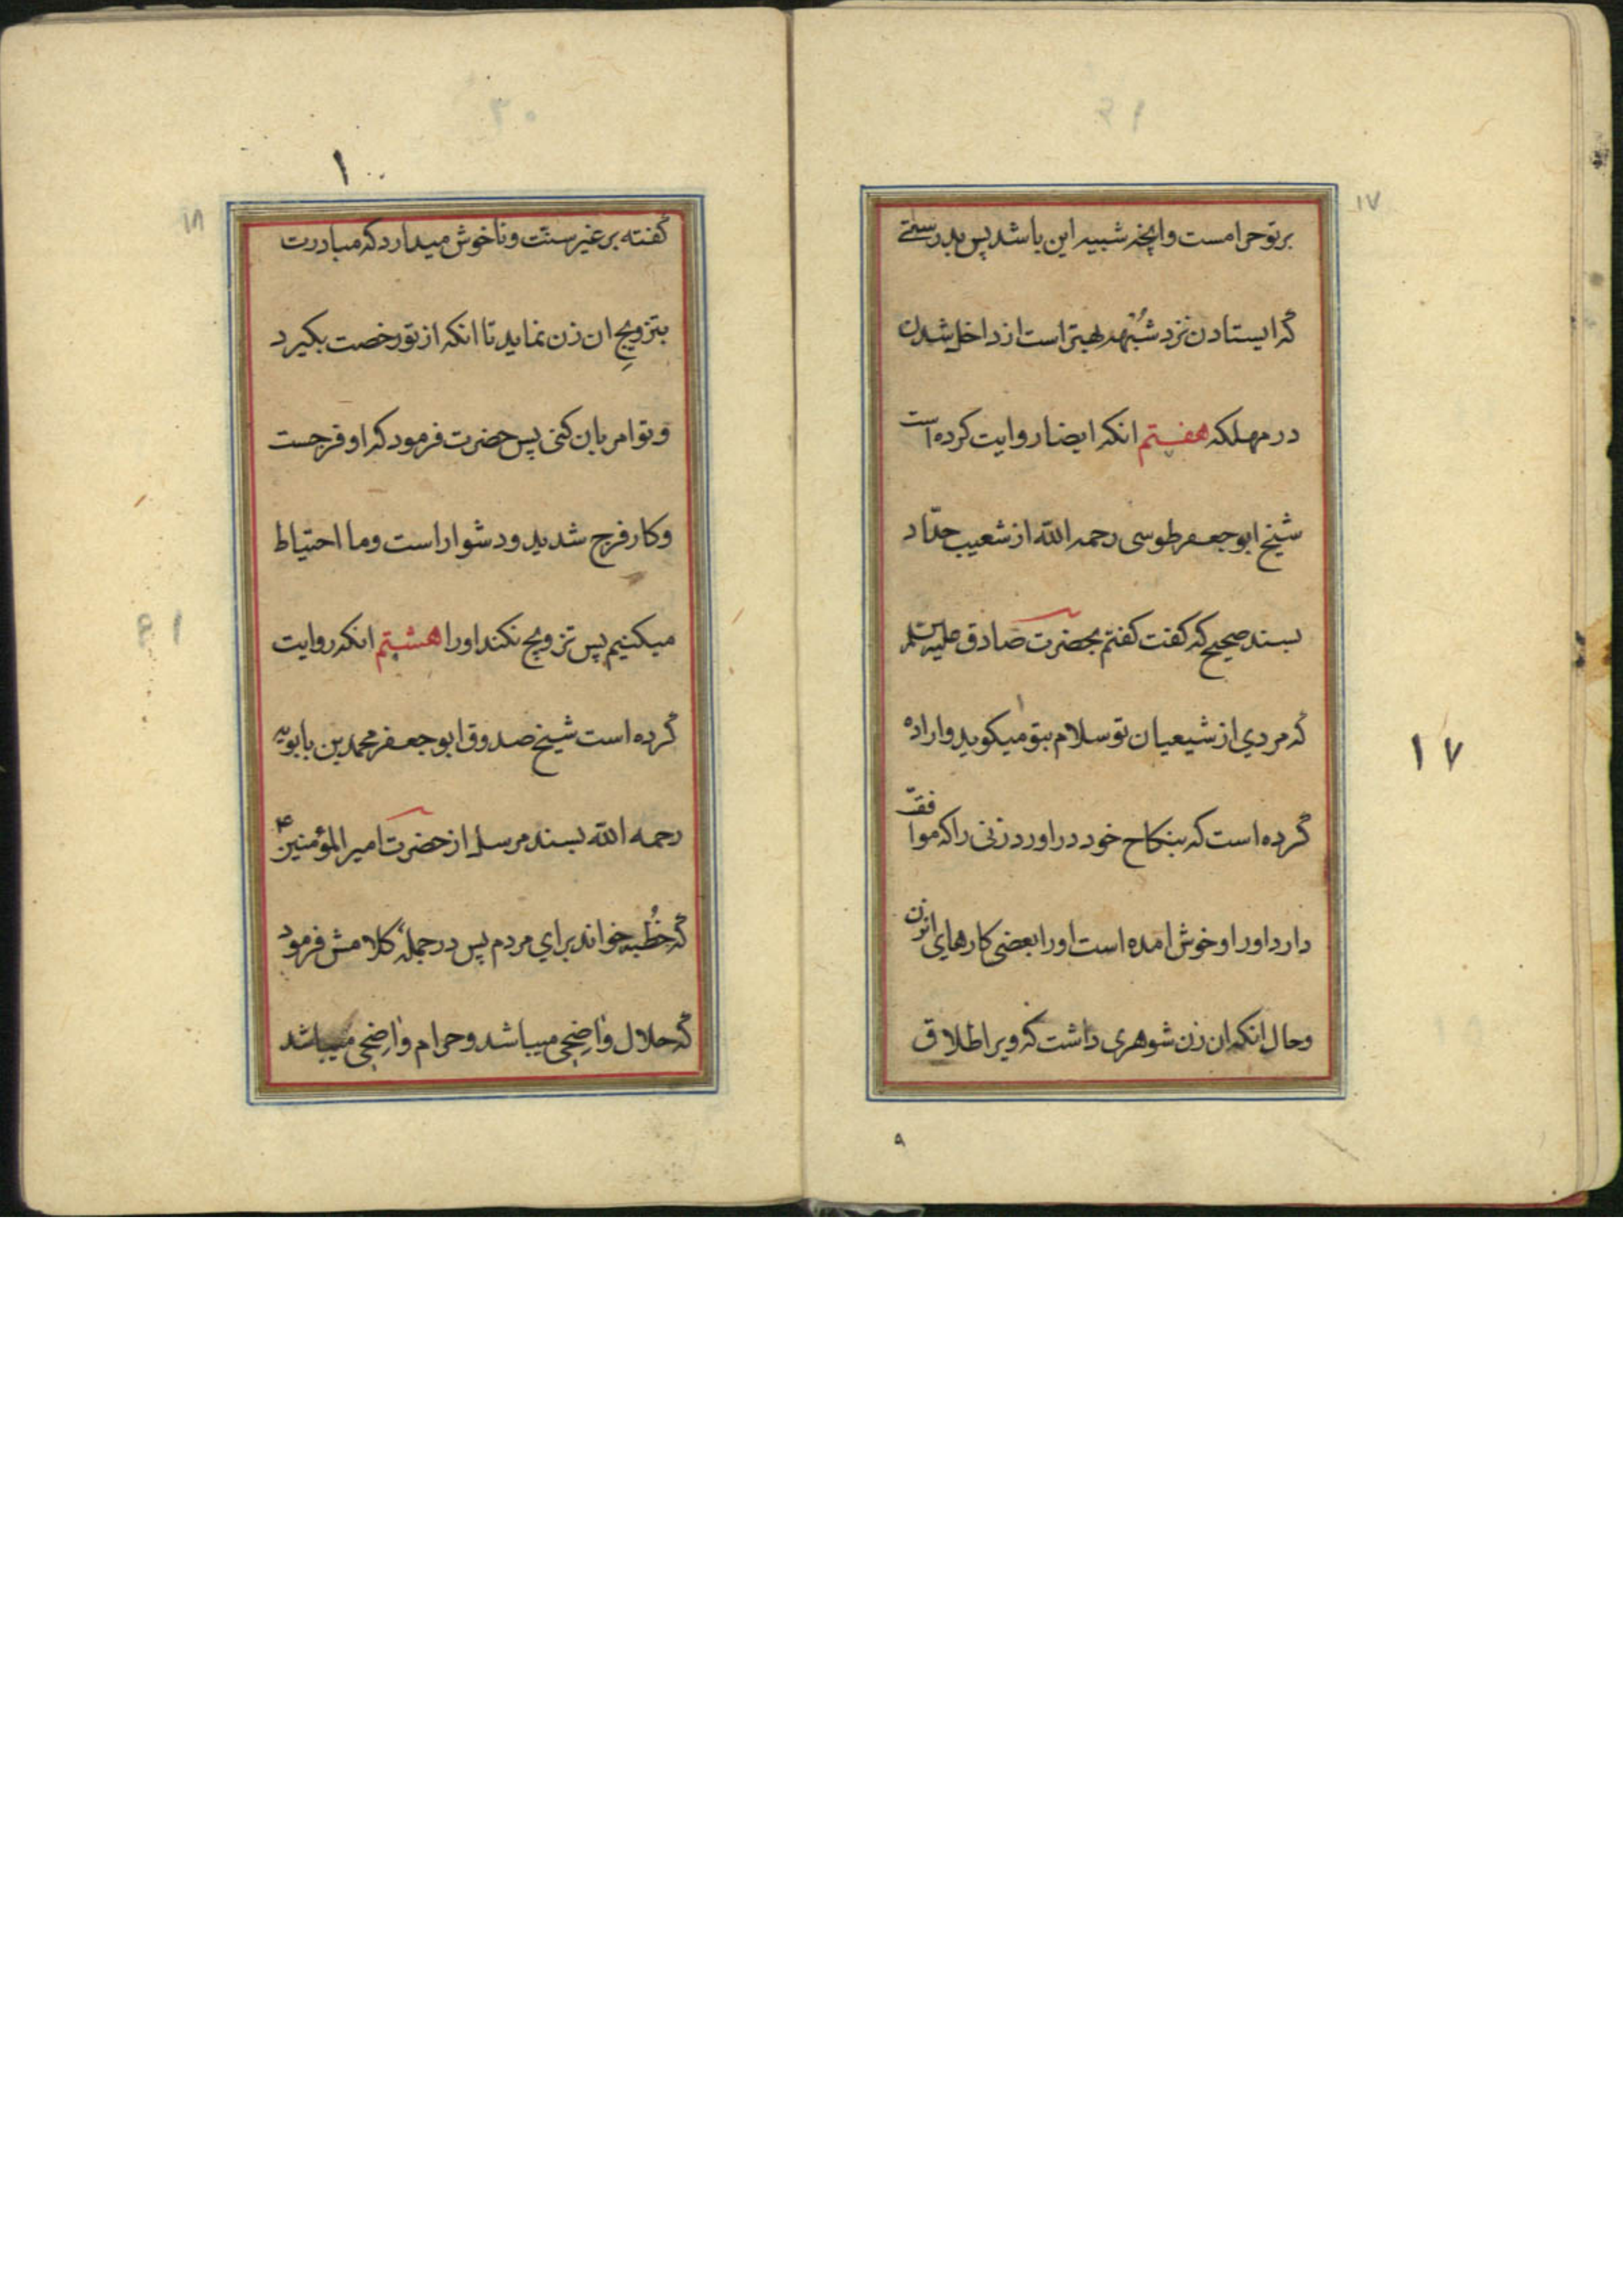 ۱۷
بر توحرامست وانچه شبیه این باشد پس بدرستے
که ایستادن نزد شُبْهه بهتر است از داخل شدن
در مهلکه هفتم انکه ایضا روایت کرده است
شیخ ابو جعفر طوسی رحمه الله از شعیب حدّاد
بسند صحیح که گفت گفتم بحضرت صادق علیه السلام
که مردي از شیعیان تو سلام بتو میکوید و اراده
۱۷
کرده است که بنکاح خود در اورد زنی را که موافقت
دارد اورا و خوش امده است اورا بعضی کارهای انزن
وحال انکه ان زن شوهری داشت که ویرا طلاق
۹
۱۸
گفته بر غیر سنّت و ناخوش میدارد که مبادرت
بتزویجِ ان زن نماید تا انکه از تو رخصت بکیرد
و تو امر بان کنی پس حضرت فرمود که او فرجست
و کار فرج شدید و دشوار است و ما احتیاط
میکنیم پس تزویج نکند اورا هشتم انکه روایت
کرده است شیخ صدوق ابو جعفر محمد بن بابویه
رحمه الله بسند مرسل از حضرت امیر المؤمنین ع
که خُطبه خواند برای مردم پس در جملهٔ کلامش فرمود
که حلال واضحی میباشد و حرام واضحی میباشد